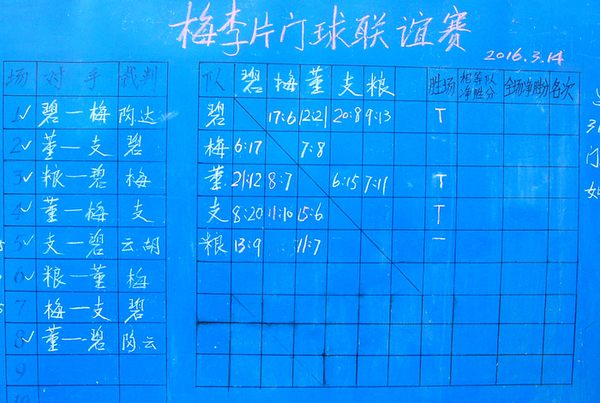 梅李片门球联谊赛
2016.3.14
场 对手 裁判
1 碧一梅 陶达
2 董一支 碧
3 粮一碧 梅
4 董一梅 支
5 支一碧 云胡
6 粮一董 梅
7 梅一支 碧
8 董一碧 陶云
9
10
队 碧 梅 董 支 粮 胜场 相等队净胜分 全场净胜分 名次
碧 17:6 12:21 20:8 9:13 T
梅 6:17 7:8
董 21:12 8:7 6:15 7:11 T
支 8:20 11:10 15:6 T
粮 13:9 11:7 一
门
如